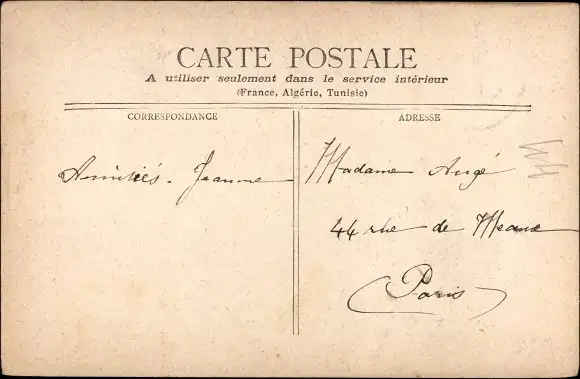 CARTE POSTALE
A utiliser seulement dans le service intérieur
(France, Algérie, Tunisie)
CORRESPONDANCE
Amitiés. Jeanne
ADRESSE
Madame Augé
44 rue de Meaux
(Paris)